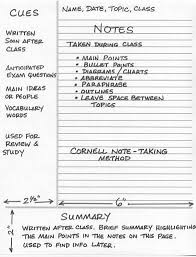 CUES
NAME, DATE, TOPIC, CLASS
NOTES
WRITTEN
SOON AFTER
CLASS
ANTICIPATED
EXAM QUESTIONS
MAIN IDEAS
OR PEOPLE
VOCABULARY
WORDS
USED FOR
REVIEW &
STUDY
TAKEN DURING CLASS
• MAIN POINTS
• BULLET POINTS
• DIAGRAMS / CHARTS
• ABBREVIATE
• PARAPHRASE
• OUTLINES
• LEAVE SPACE BETWEEN
TOPICS
CORNELL NOTE-TAKING
METHOD
2½"
6"
SUMMARY
2"
WRITTEN AFTER CLASS, BRIEF SUMMARY HIGHLIGHTING
THE MAIN POINTS IN THE NOTES ON THIS PAGE.
USED TO FIND INFO LATER.